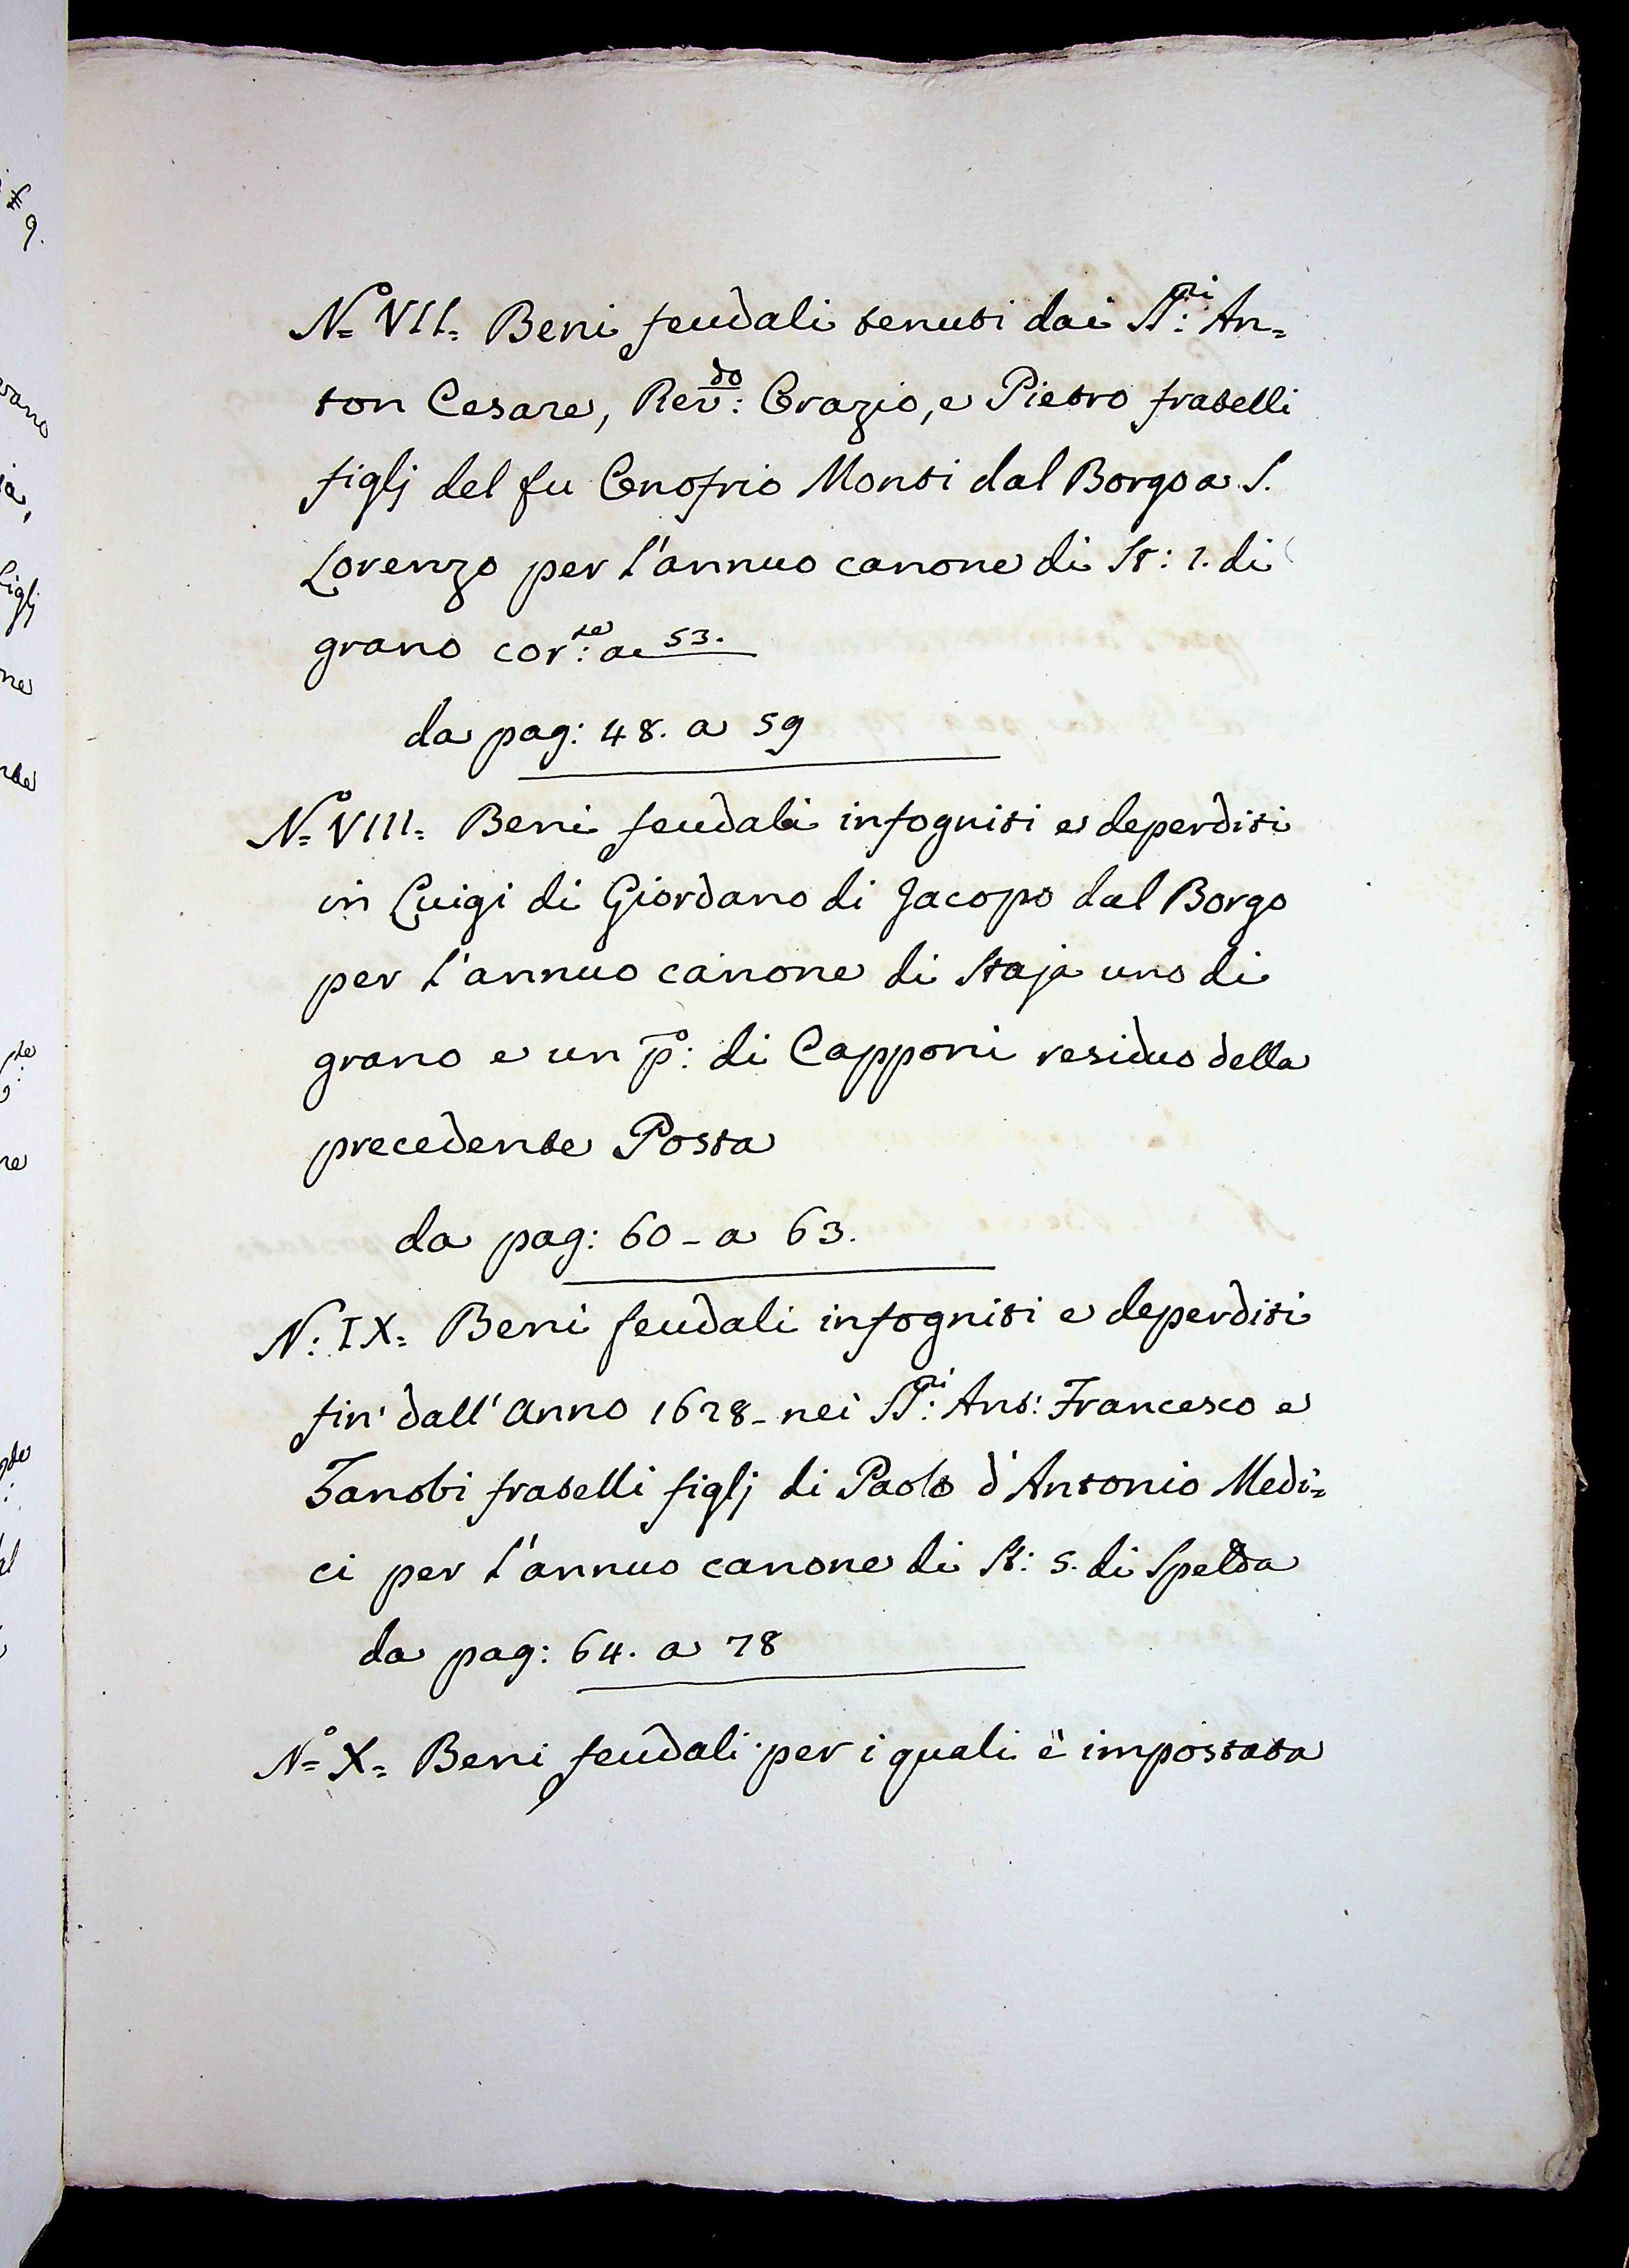 N.º VII. Beni feudali tenuti dai SS.ri An=
ton Cesare, Rev:do Orazio, e Pietro fratelli
figlj del fu Onofrio Monti dal Borgo a S.
Lorenzo per l'annuo canone di St: 1. di
grano cor:te a 53.
da pag: 48. a 59
N.º VIII. Beni feudali infogniti e deperditi
in Luigi di Giordano di Jacopo dal Borgo
per l'annuo canone di Staja uno di
grano e un p:º di Capponi residuo della
precedente Posta
da pag: 60 - a 63.
N: IX. Beni feudali infogniti e deperditi
fin' dall'anno 1628 - nei SS:ri Ant: Francesco e
Zanobi fratelli figlj di Paolo d'Antonio Medi=
ci per l'annuo canone di St: 5. di Spelda
da pag: 64. a 78
N.º X. Beni feudali per i quali è impostata